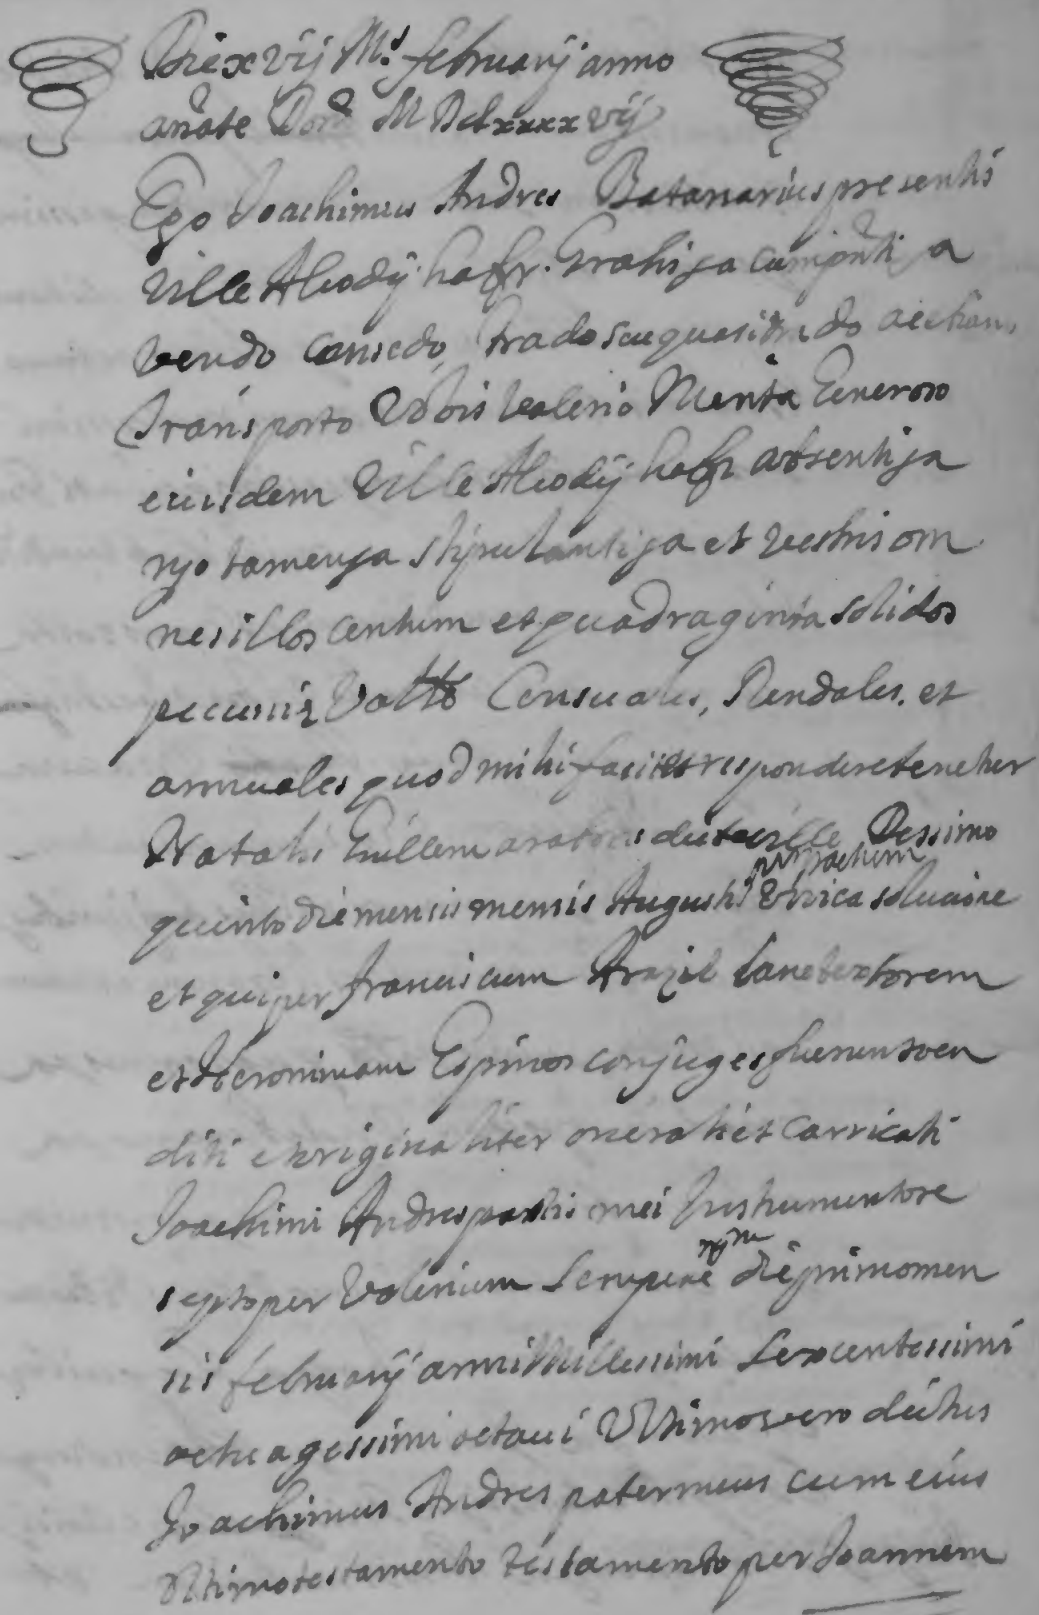 Die xvij Ms februarij anno
anate Dom M DCLxxxxvij
Ego Joachimus Andres Batanarius presentis
Ville Alcodij habr. Gratis ga cum pnti ga
Vendo Concedo, trado seu quasi trado
Transporto Vobis Valerio Merita Generoso
eiusdem Ville Alcodij habr absenti ga
ngo tamen ga stipulanti ga et vestris om
nes illos centum et quadraginta solidos
pecunie Censuales, Rendales, et
annuales quod mihi facit et respondere tenetur
Natalis Guillem arator dicte ville Dessimo
quinto die mensis mensis Augusti per pactum Unica solucione
et qui per Franciscum Brazil lane textorem
et Hieronimam Espinos conjuges fuerunt ven
diti et originaliter onerati et Carricati
Joachimi Andres patris mei Instrumento re
septo per Valerium Sempere die primo men
sis februarij anni Millessimi Sexcentessimi
octuagessimi octavi Ultimo vero dictus
Joachimus Andres pater meus cum eius
Ultimo testamento testamento per Joannem